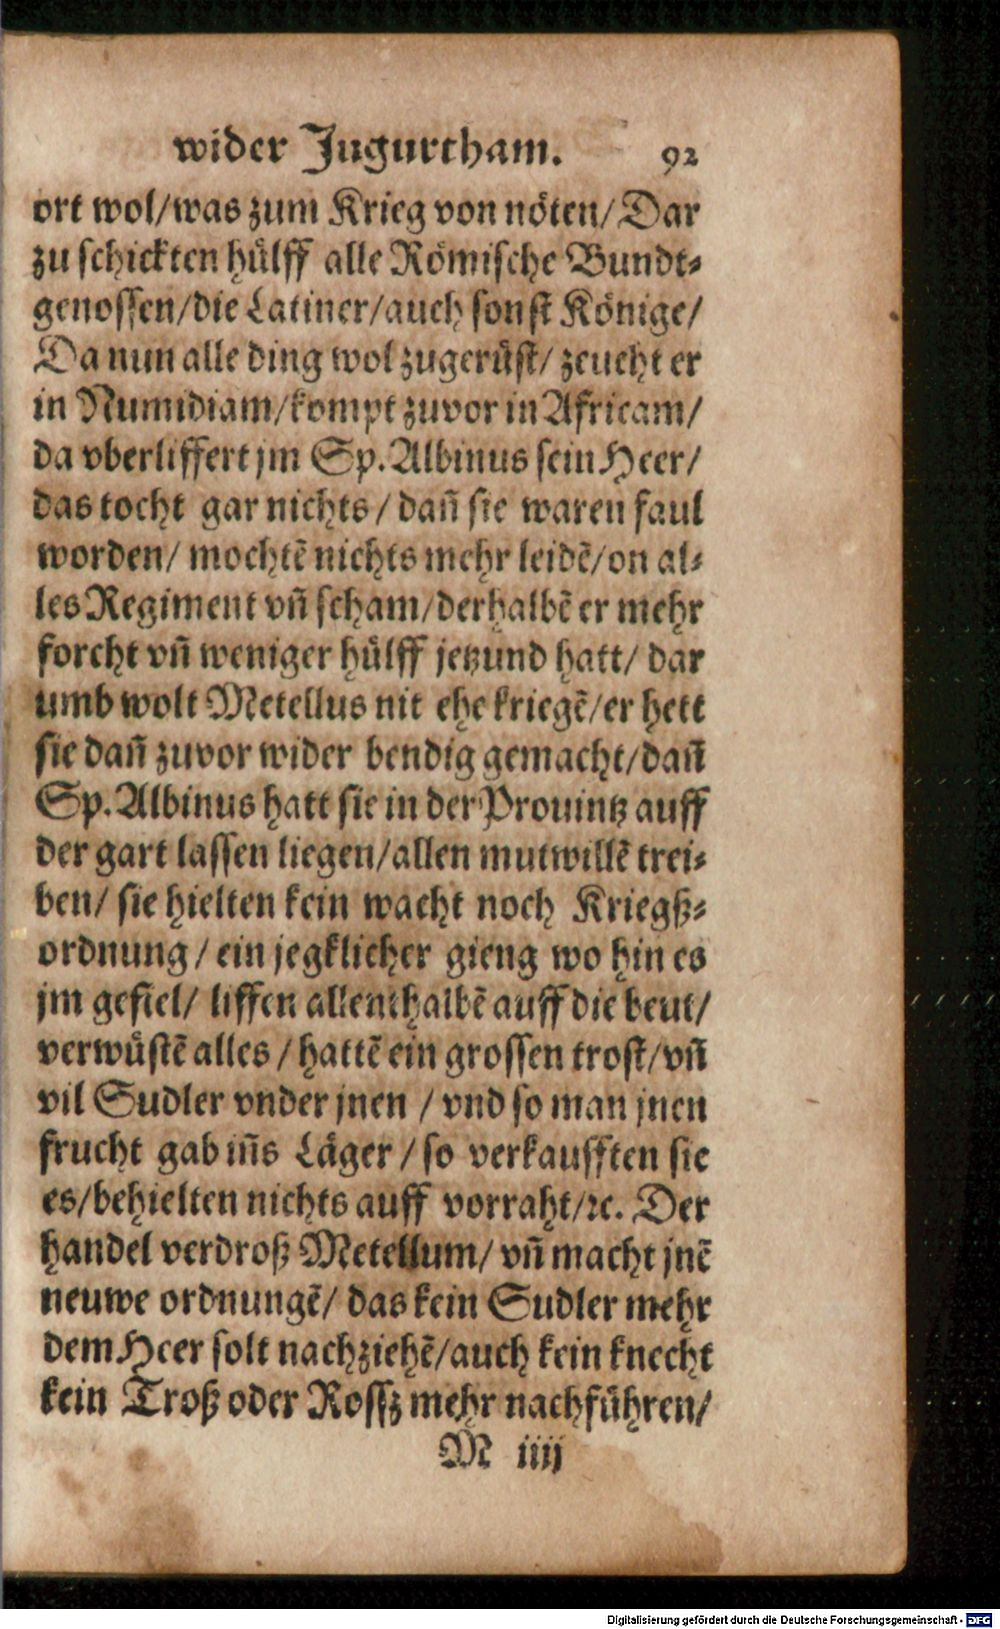 wider Jugurtham. 92
ort wol/was zum Krieg von nöten/Dar
zu schickten hülff alle Römische Bundt⸗
genossen/die Latiner/auch sonst Könige/
Da nun alle ding wol zugerüst/ zeucht er
in Numidiam/kompt zuvor in Africam/
da vberliffert jm Sp. Albinus sein Heer/
das tocht gar nichts/ dañ sie waren faul
worden/ mochtẽ nichts mehr leidẽ/on al⸗
les Regiment vñ scham/derhalbẽ er mehr
forcht vñ weniger hülff jetzund hatt/ dar
umb wolt Metellus nit ehe kriegẽ/er hett
sie dañ zuvor wider bendig gemacht/dañ
Sp. Albinus hatt sie in der Prouintz auff
der gart lassen liegen/allen mutwillẽ trei⸗
ben/ sie hielten kein wacht noch Kriegß⸗
ordnung/ ein jegklicher gieng wo hin es
jm gefiel/ liffen allenthalbẽ auff die beut/
verwüstẽ alles/ hattẽ ein grossen trost/vñ
vil Sudler vnder jnen / vnd so man jnen
frucht gab iñs Läger/ so verkaufften sie
es/behielten nichts auff vorraht/ꝛc. Der
handel verdroß Metellum/ vñ macht jnẽ
neuwe ordnungẽ/ das kein Sudler mehr
dem Heer solt nachziehẽ/auch kein knecht
kein Troß oder Rossz mehr nachführen/
M iiij
Digitalisierung gefördert durch die Deutsche Forschungsgemeinschaft - DFG